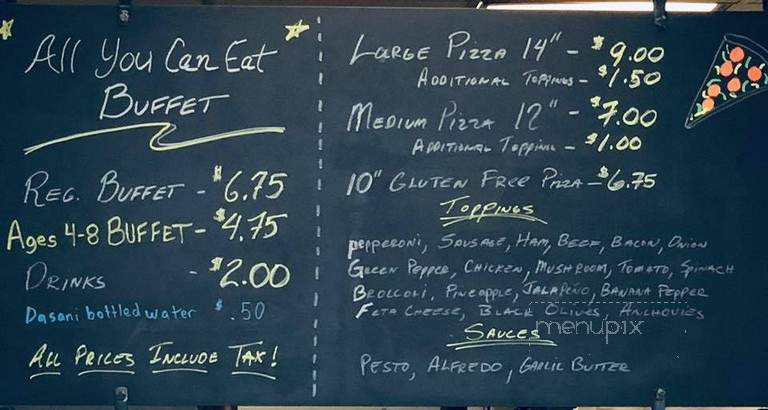 All You Can Eat
BUFFET
REG. BUFFET - $6.75
Ages 4-8 BUFFET - $4.75
DRINKS - $2.00
Dasani bottled water $ .50
ALL PRICES INCLUDE TAX!
LARGE PIZZA 14" - $9.00
ADDITIONAL TOPPINGS - $1.50
MEDIUM PIZZA 12" - $7.00
ADDITIONAL TOPPING - $1.00
10" GLUTEN FREE PIZZA - $6.75
TOPPINGS
PEPPERONI, SAUSAGE, HAM, BEEF, BACON, ONION
GREEN PEPPER, CHICKEN, MUSHROOM, TOMATO, SPINACH
BROCCOLI, PINEAPPLE, JALAPEÑO, BANANA PEPPER
FETA CHEESE, BLACK OLIVES, ANCHOVIES
menupix
SAUCES
PESTO, ALFREDO, GARLIC BUTTER